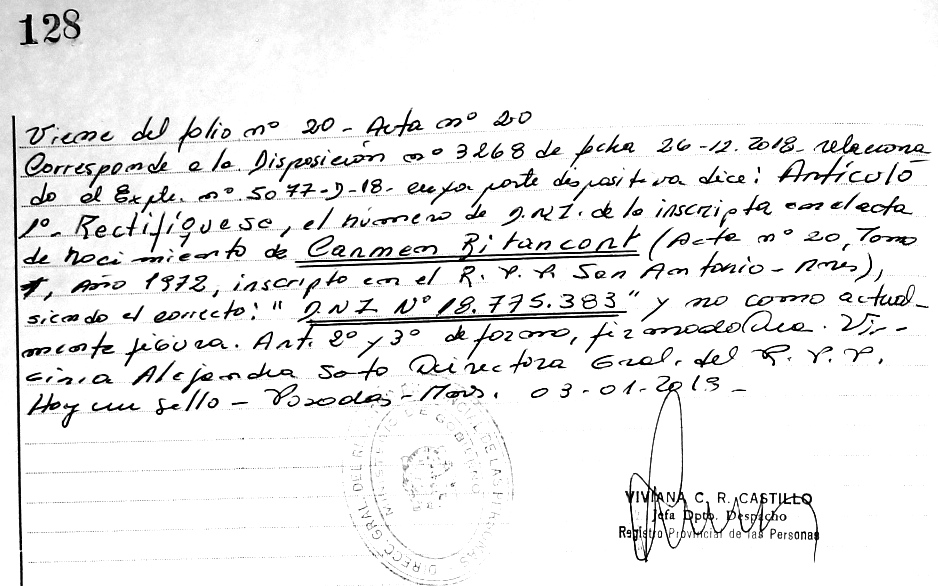 128
Viene del folio nº 20 - Acta nº 20
Corresponde a la Disposición nº 3268 de fecha 26-12-2018- relaciona
do al Expte. nº 5077-D-18- en cuya parte dispositiva dice: Artículo
1º- Rectifíquese, el número de D.N.I. de la inscripta en el acta
de nacimiento de Carmen Bitancort (Acta nº 20, Tomo
1, Año 1972, inscripto en el R. P. P. San Antonio - Mnes),
siendo el correcto: "D.N.I. Nº 18.775.383" y no como actual-
mente figura. Art. 2º y 3º de forma, firmado Dra.
Alejandra Soto Directora Gral. del R. P. P.
Hay un sello - Posadas - Mnes. 03-01-2019 -
DIRECC. GRAL. DEL
MINISTERIO DE GOBIERNO
DE LAS PERSONAS
VIVIANA C. R. CASTILLO
Jefa Dpto. Despacho
Registro Provincial de las Personas